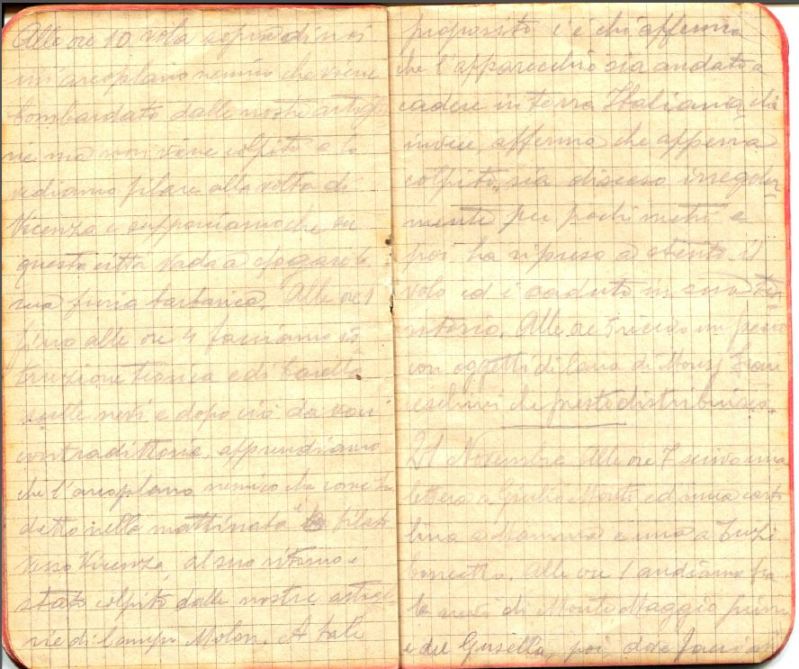 Alle ore 10 vola sopra di noi
un aeroplano nemico che viene
bombardato dalle nostre artiglie
rie ma non viene colpito e lo
vediamo filare alla volta di
Vicenza e supponiamo che su
questa città vada a sfogare la
sua furia barbarica. Alle ore 1
fino alle ore 4 facciamo is
truzione teorica e di barella
sulle nevi e dopo ciò da voci
contradittorie, apprendiamo
che l'aeroplano nemico che come ho
detto nella mattinata filato
verso Vicenza, al suo ritorno è
stato colpito dalle nostre artiglie
rie di Campo Molon. A tale
proposito c'è chi afferma
che l'apparecchio sia andato a
cadere in terra Italiana, chi
invece afferma che appena
colpito, sia disceso irregolar
mente per pochi metri e
poi ha ripreso a stento il
volo ed è caduto in suo ter
ritorio. Alle ore 5 ricevo un pacco
con oggetti di lana di Mons.
che presto distribuisco.
21 Novembre Alle ore 7 scrivo una
lettera a Giulio Monti ed una carto
lina a Mamma e una a
Alle ore 1 andiamo fra
le nevi di Monte Maggio prima
e del Gusella, poi, dove facciamo